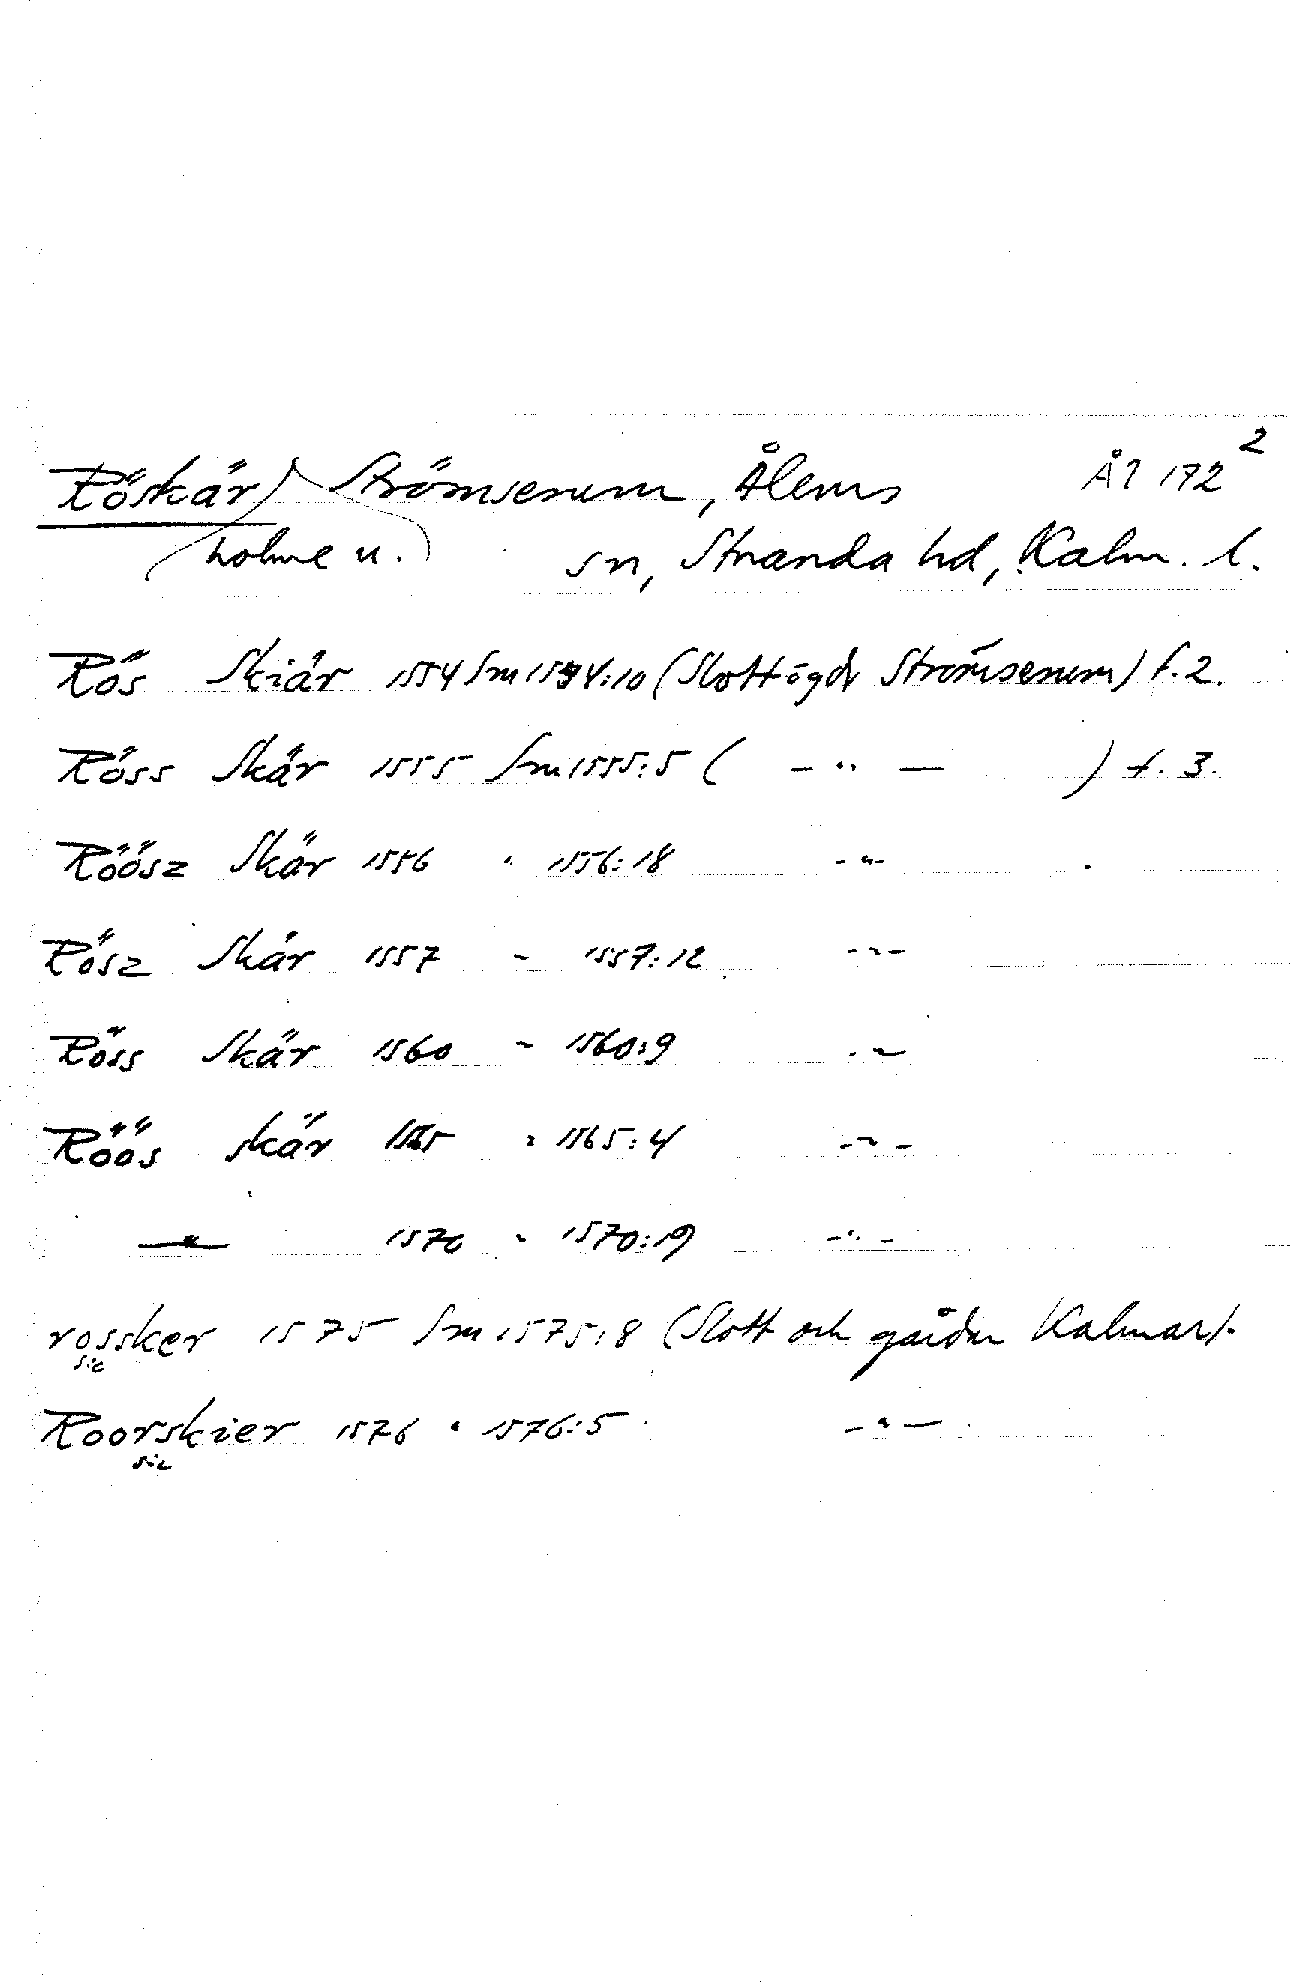 Röskär) Strömserum, Ålems Ål 172 2
(holme u.) sn, Stranda hd, Kalm. l.
Rös Skiär 1554 Sm 1554:10 (Slott o gdr Strömserum) f. 2.
Röss Skär 1555 Sm 1555:5 ( — " — ) f. 3.
Röösz Skär 1556 " 1556:18 — " —
Rösz Skär 1557 " 1557:12 — " —
Röss Skär 1560 " 1560:9 — " —
Röös skär 1565 " 1565:4 — " —
— " — 1570 " 1570:19 — " —
rossker 1575 Sm 1575:8 (Slott och gårdar Kalmar).
sic
Roorskier 1576 " 1576:5 — " —
sic